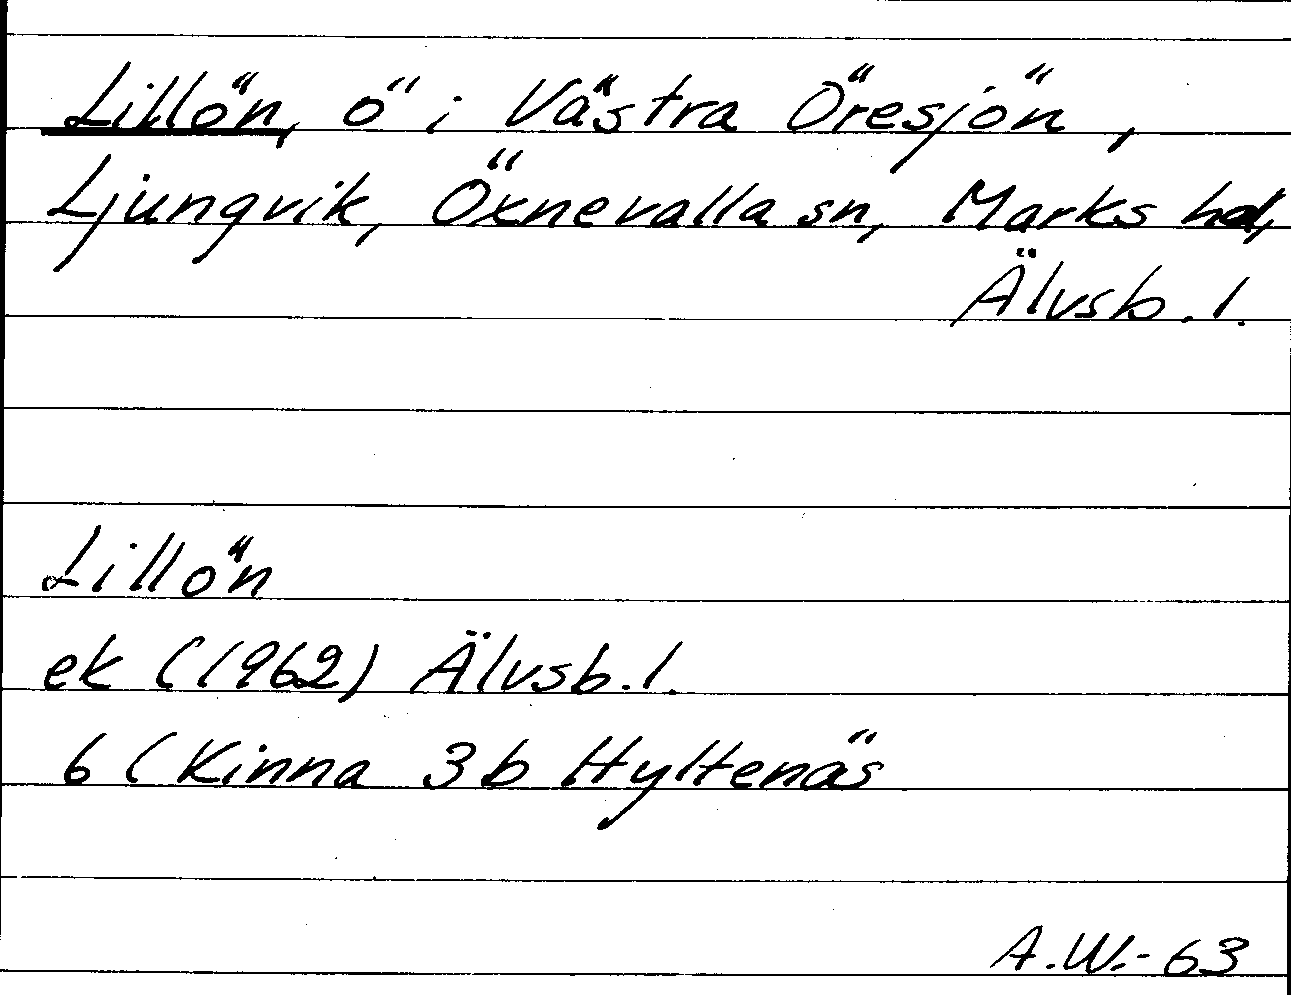 Lillön, ö i Västra Öresjön,
Ljungvik, Öxnevalla sn, Marks hd,
Älvsb. l.
Lillön
ek (1962) Älvsb. l.
6 (Kinna 3b Hyltenäs
A.W.-63